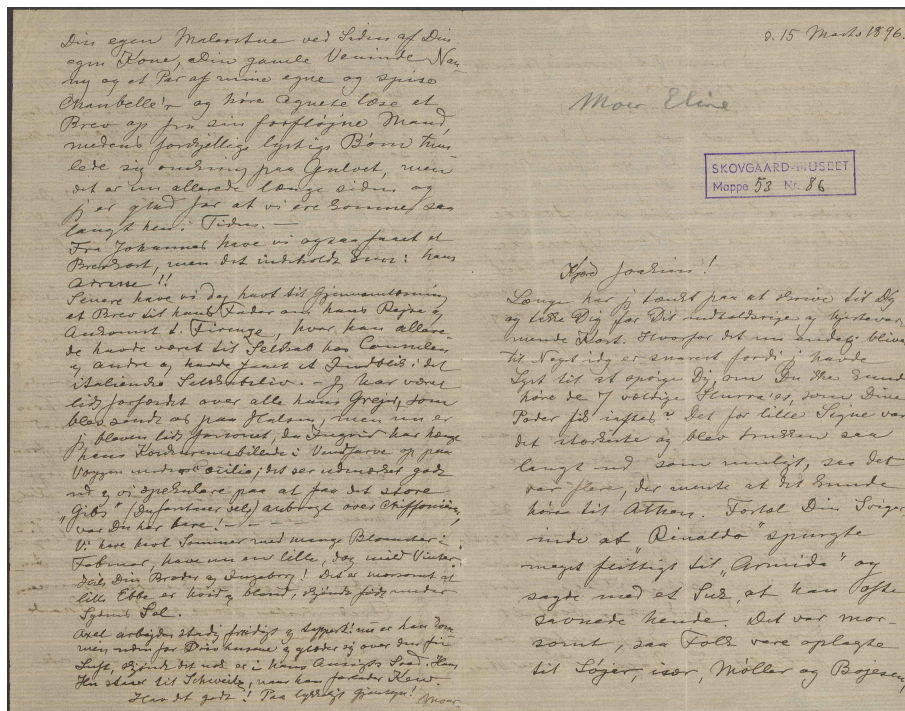 Din egen Malerstue ved Siden af Din
egen Kone, Din gamle Veninde Nan-
ny og et Par af mine egne og spise
og høre Agnete læse et
Brev op fra sin forfløjne Mand,
medens forskjellige lystige Børn tum-
lede sig omkring paa Gulvet, men
det er nu allerede længe siden og
jeg er glad for at vi ere komne saa
langt hen i Tiden. —
Fra Johannes have vi ogsaa faaet et
Brevkort, men det indeholdt kun: hans
Adresse!!
Senere have vi dog havt til Gjennemlæsning
et Brev til hans Fader om hans Rejse og
Ankomst t. Firenze, hvor han allere-
de havde været til Selskab hos Consulen
og andre og havde faaet et Indblik i det
italienske Selskabsliv. — Jeg har været
lidt forfærdet over alle hans Grejer, som
blev sendt os paa Halsen, men nu er
jeg bleven lidt forsonet, da Ingrid har hængt
hans Konkurrencebillede i Vandfarve op paa
Væggen under Cecilia; det ser udmærket godt
ud og vi spekulere paa at faa det store
„Gibs" (Du fantaser selv) anbragt over Chiffonièren,
var Du her bare! — — —
Vi have havt Sommer med mange Blomster i
Februar, have nu en lille, dog mild Vinter.
Din Broder og Ingeborg! Det er morsomt at
lille Ebbe er hvid og blond, skjøndt født under
Sydens Sol.
Axel arbejder stadig flittigt og tappert: nu er han kom-
men uden for Drivhusene og glæder sig over den fri
Luft, skjøndt det nok er i hans Ansigts Sved. Hans
Hu staar til Schweitz, naar han forlader Kew.
Hav det godt! Paa lykkeligt Gjensyn! Moer.
d. 15 Marts 1896.
Moer Eline
SKOVGAARD-MUSEET
Mappe 53 Nr. 86
Kjære Joakim!
Længe har jeg tænkt paa at skrive til Dig
og takke Dig for Dit indholdsrige og hjertevar-
mende Kort. Hvorfor det nu endelig bliver
til Noget idag er snarest fordi jeg havde
Lyst til at spørge Dig, om Du ikke kunde
høre de 7 vældige Hurra'er, som Dine
Poder fik iaftes? Det for lille Signe var
det stærkeste og blev trukken saa
langt ud som muligt, saa det
var flere, der mente at det kunde
høres til Athen. Fortæl Din Sviger-
inde at „Rinaldo" spurgte
meget flittigt til „Armida" og
sagde med et Suk, at han ofte
savnede hende. Det var mor-
somt, saa Folk vare oplagte
til Løjer, især, Møller og Bojesen,